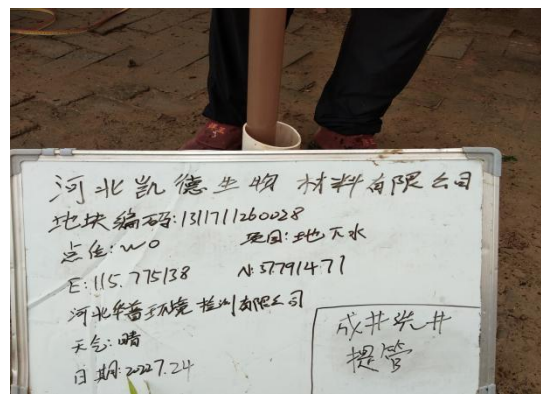 河北凯德生物材料有限公司
地块编码:1311711260028
点位:W0 项目:地下水
E:115.775138 N:37.791471
河北华普环境检测有限公司
天气:晴
日期:2022.7.24
成井洗井
提管